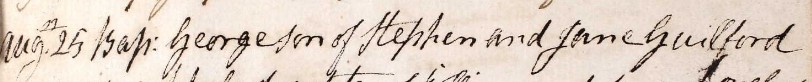 Aug: 25 Bap: George son of Stephen and Jane Guilford